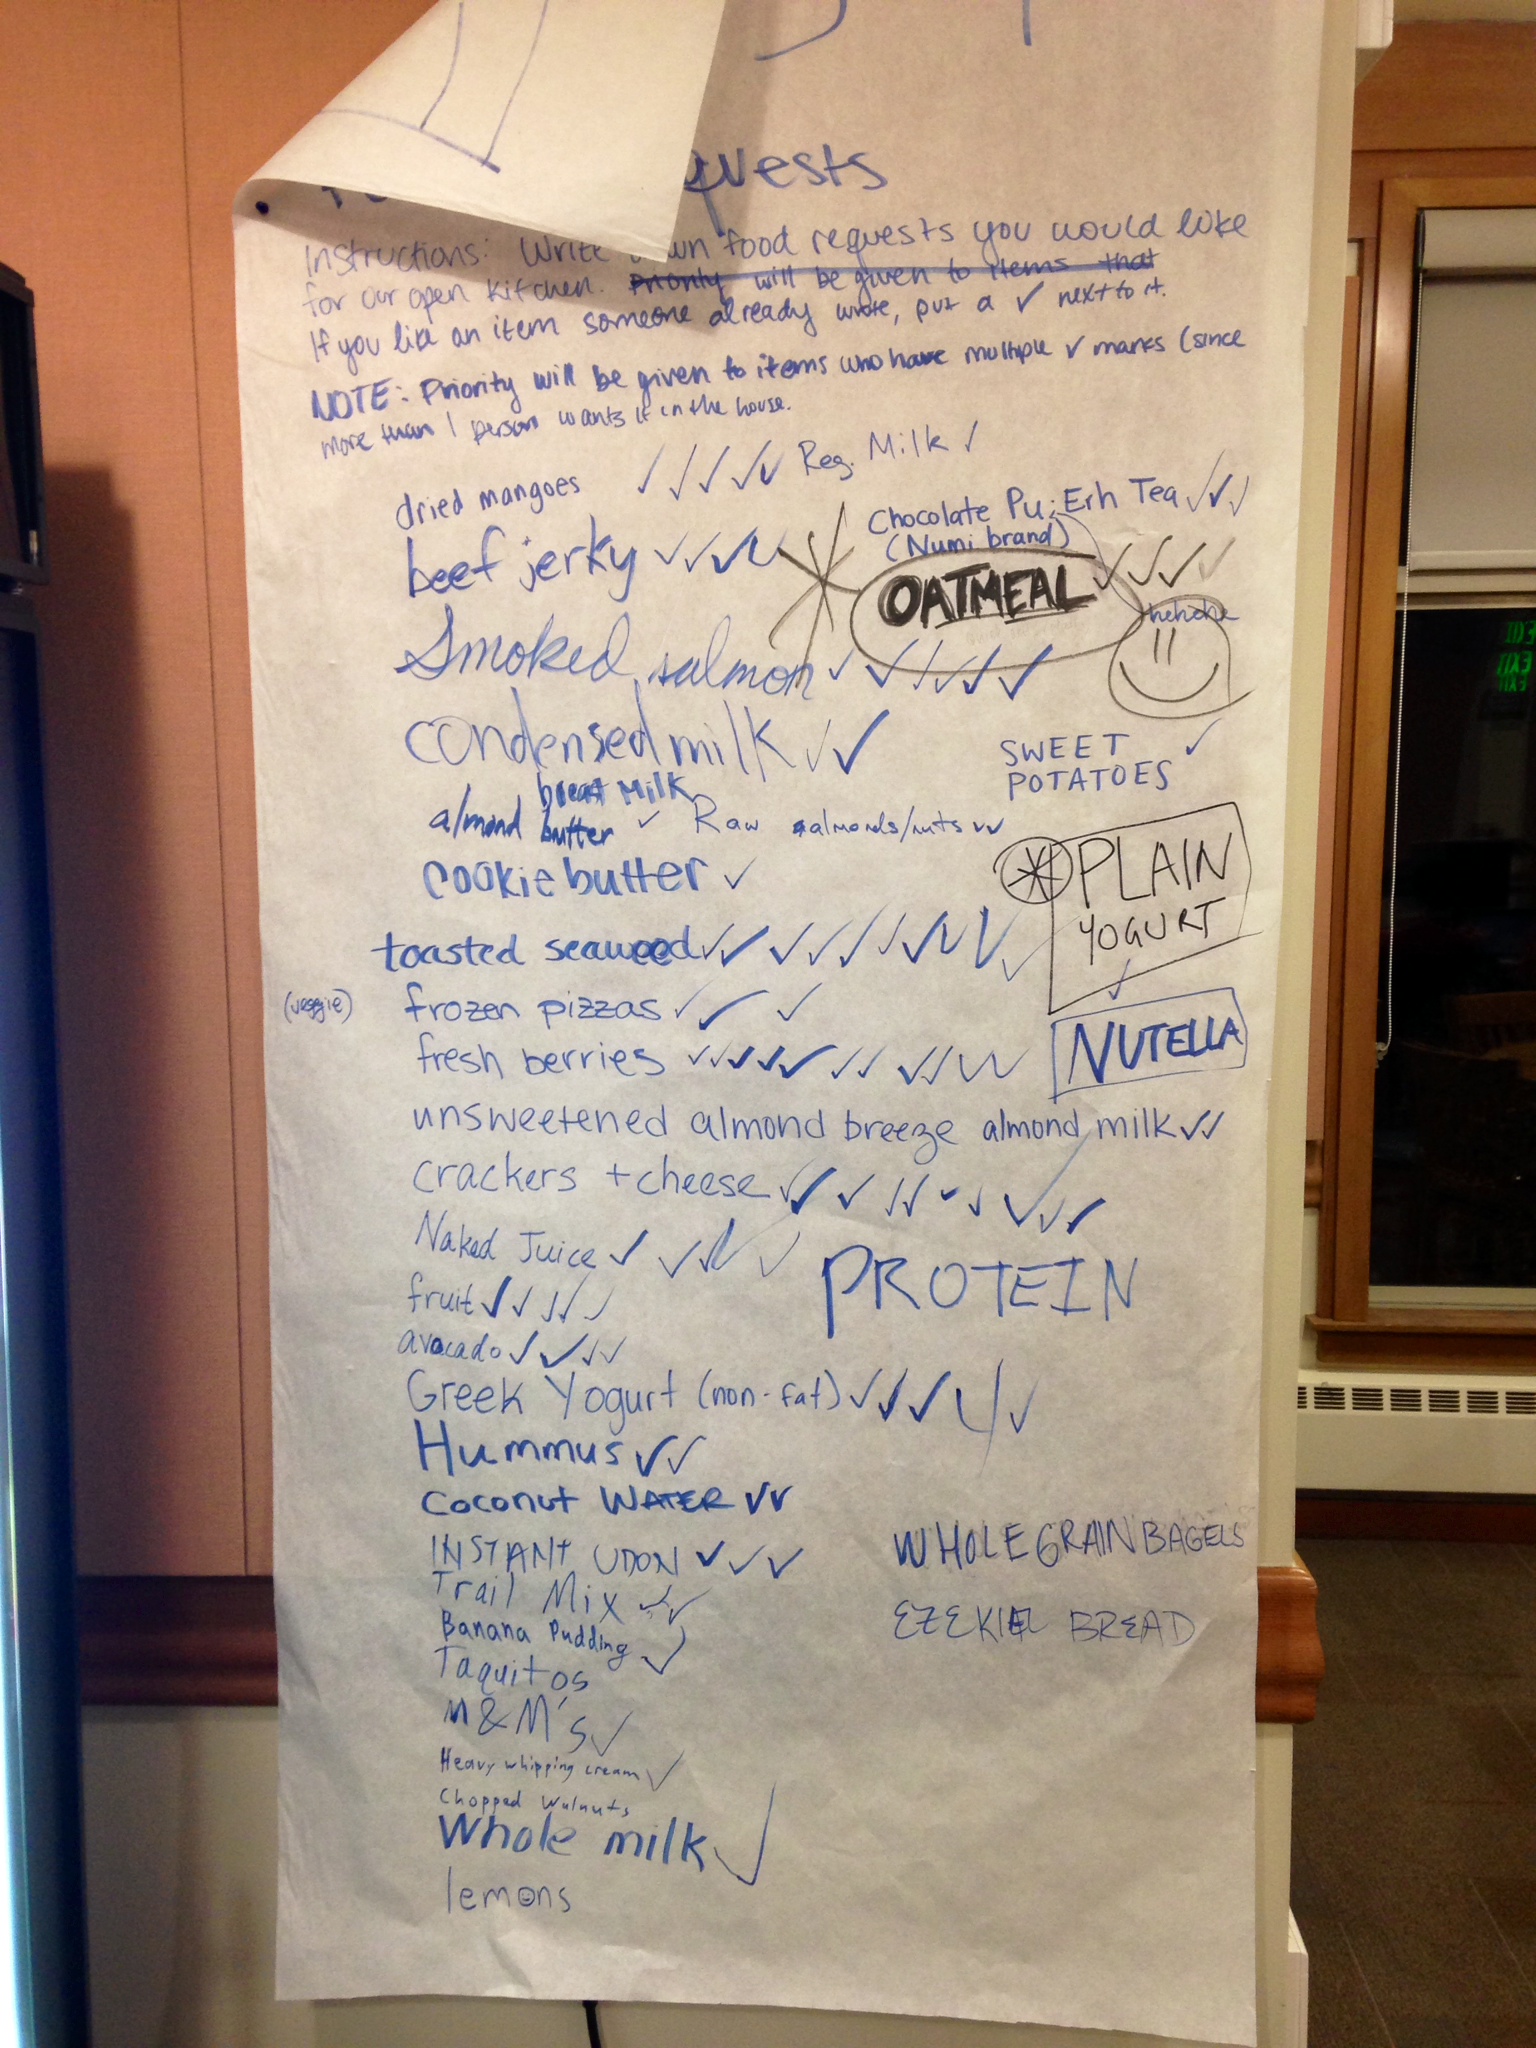 quests
Instructions: Write wn food requests you would like
for our open kitchen. Priority will be given to items that
If you like an item someone already wrote, put a ✓ next to it.
NOTE: Priority will be given to items who have multiple ✓ marks (since
more than 1 person wants it in the house.
dried mangoes ✓ ✓ ✓ ✓ ✓ Reg. Milk ✓
Chocolate Pu-Erh Tea ✓ ✓ ✓
(Numi brand)
beef jerky ✓ ✓ ✓ ✓
OATMEAL ✓ ✓ ✓ ✓
hehehe
Smoked salmon ✓ ✓ ✓ ✓ ✓ ✓
condensed milk ✓ ✓
SWEET ✓
POTATOES
breast Milk
almond butter ✓ Raw almonds/nuts ✓ ✓
cookie butter ✓
PLAIN
YOGURT ✓
toasted seaweed ✓ ✓ ✓ ✓ ✓ ✓ ✓ ✓ ✓ ✓
(veggie) frozen pizzas ✓ ✓ ✓
NUTELLA
fresh berries ✓ ✓ ✓ ✓ ✓ ✓ ✓ ✓ ✓ ✓ ✓
unsweetened almond breeze almond milk ✓ ✓
crackers + cheese ✓ ✓ ✓ ✓ ✓ ✓ ✓ ✓ ✓ ✓
Naked Juice ✓ ✓ ✓ ✓ ✓
PROTEIN
fruit ✓ ✓ ✓ ✓ ✓
avocado ✓ ✓ ✓ ✓
Greek Yogurt (non-fat) ✓ ✓ ✓ ✓ ✓ ✓
Hummus ✓ ✓
Coconut WATER ✓ ✓
INSTANT UDON ✓ ✓ ✓
WHOLE GRAIN BAGELS
Trail Mix ✓ ✓
Banana Pudding ✓
EZEKIEL BREAD
Taquitos ✓
M&M's ✓
Heavy whipping cream ✓
Chopped Walnuts
Whole milk ✓
lemons